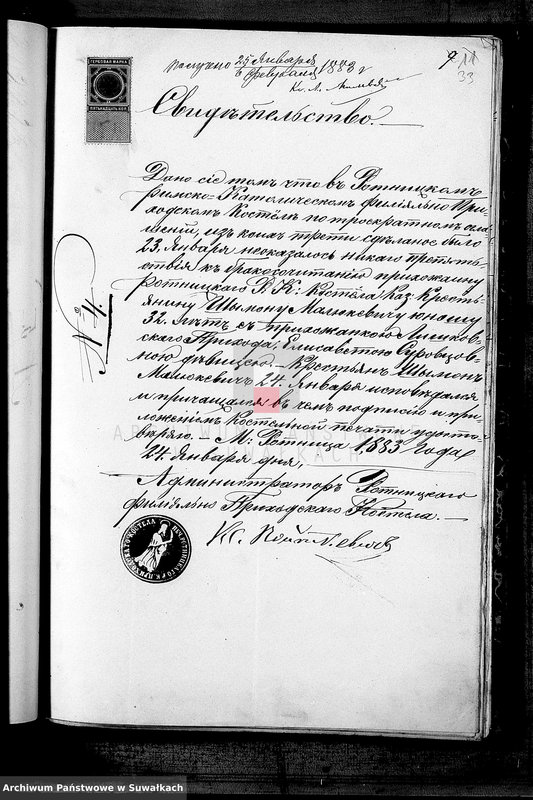 ГЕРБОВАЯ МАРКА
получено 25 Января
6 Февраля 1883 г
Кс. А.
9 11
33
Свидѣтельство.
Дано сіе томъ что въ Ротницкомъ
римско-Католическомъ филіяльно При-
ходскомъ Костёлѣ по троекратномъ огла-
шеніи, изъ коихъ трети сдѣланое было
23. Января неоказалось никаго препят-
ствія къ бракосочитанію прихожанину
Ротницкаго Р. К: Костёла Каз: Кресть-
янину Шымону Малюкевичу юному
32. лѣтъ съ прихожанкою
скаго Прихода, Елисаветою Суровцов-
ною дѣвицею. – Крестьян: Шымон
Малюкевичъ 24. Января исповѣдался
и причащался въ чемъ подписию и при-
ложеніемъ Костельной печати удосто-
вѣряю. – М. Ротница 1883 года
24. Января дня,
Администраторъ Ротницкаго
филіяльно Приходскаго Костела. –
Кс.
№ 4.
Archiwum Państwowe w Suwałkach